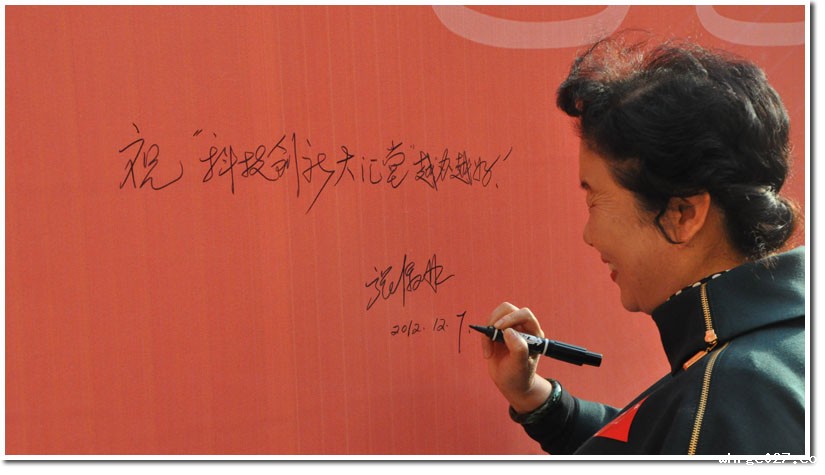 祝“科技创新大汇堂”越办越好！
2012.12.7.